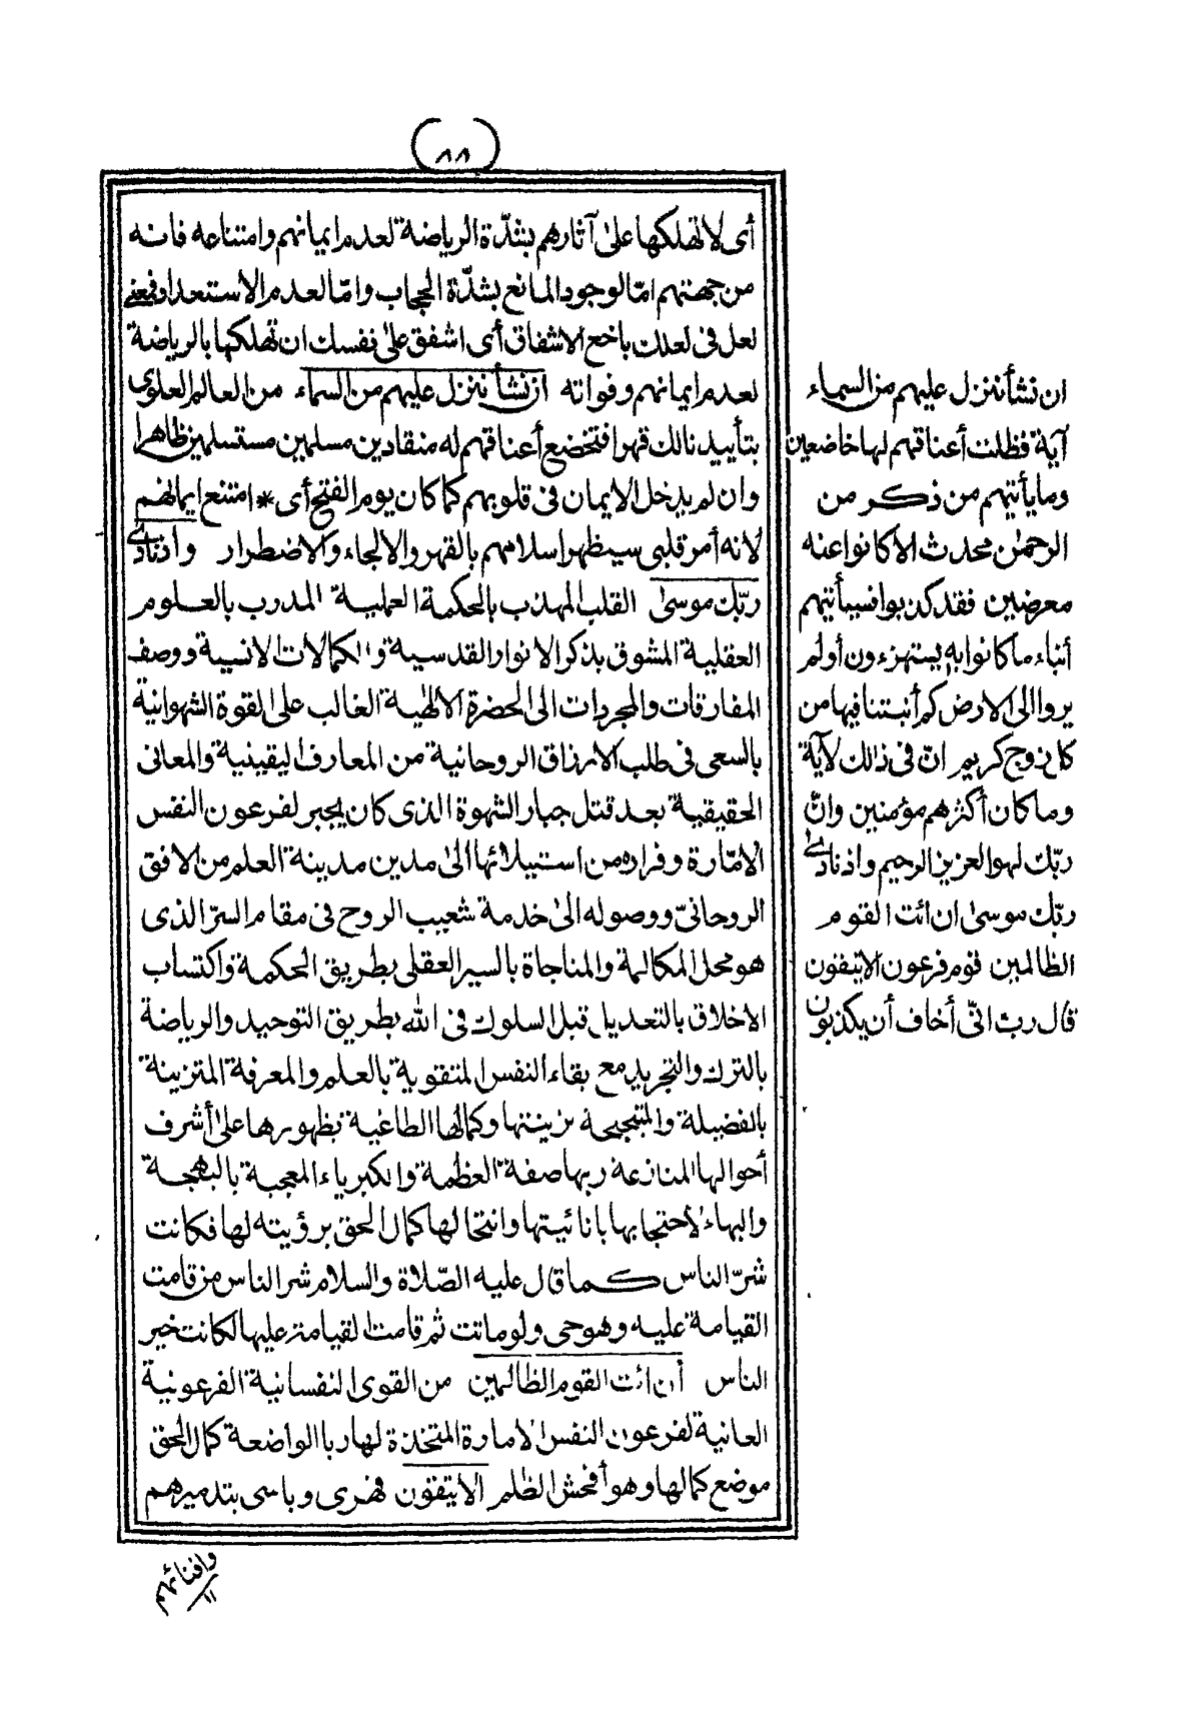 (٨٨)
أى لا تهلكها على آثارهم بشدّة الرياضة لعدم ايمانهم وامتناعه فانه
من جهتهم امّا لوجود المانع بشدّة الحجاب وامّا لعدم الاستعداد فمعنى
لعل فى لعلك باخع الاشفاق أى اشفق على نفسك ان تهلكها بالرياضة
لعدم ايمانهم وفواته ان نشأ ننزل عليهم من السماء من العالم العلوى
بتأييدنا لك قهرا فتخضع أعناقهم له منقادين مسلمين مستسلمين ظاهرا
وان لم يدخل الايمان فى قلوبهم كما كان يوم الفتح أى * امتنع ايمانهم
لانه أمر قلبى سيظهر اسلامهم بالقهر والالجاء والاضطرار واذ نادى
ربّك موسى القلب المهذب بالحكمة العملية المدرب بالعلوم
العقلية المشوق بذكر الانوار القدسية والكمالات الانسية ووصف
المفارقات والمجردات الى الحضرة الالٰهية الغالب على القوة الشهوانية
بالسعى فى طلب الارزاق الروحانية من المعارف اليقينية والمعانى
الحقيقية بعد قتل جبار الشهوة الذى كان يجبر لفرعون النفس
الامّارة وفراره من استيلائها الى مدين مدينة العلم من الافق
الروحانىّ ووصوله الى خدمة شعيب الروح فى مقام السرّ الذى
هو محل المكالمة والمناجاة بالسير العقلى بطريق الحكمة واكتساب
الاخلاق بالتعديل قبل السلوك فى الله بطريق التوحيد والرياضة
بالترك والتجريد مع بقاء النفس المتقوية بالعلم والمعرفة المتزينة
بالفضيلة والمتبجحة بزينتها وكمالها الطاغية بظهورها على أشرف
أحوالها المنازعة ربها صفة العظمة والكبرياء المعجبة بالبهجة
والبهاء لاحتجابها بانائيتها وانتحالها كمال الحق برؤيته لها فكانت
شرّ الناس كما قال عليه الصّلاة والسلام شر الناس من قامت
القيامة عليه وهو حى ولو ماتت ثم قامت القيامة عليها لكانت خير
الناس أن ائت القوم الظالمين من القوى النفسانية الفرعونية
العانية لفرعون النفس الامارة المتخذة لها ربا الواضعة كمال الحق
موضع كمالها وهو أفحش الظلم الا يتقون قهرى وباسى بتدميرهم
وافنائهم
ان نشأ ننزل عليهم من السماء
آية فظلت أعناقهم لها خاضعين
وما يأتيهم من ذكر من
الرحمٰن محدث الا كانوا عنه
معرضين فقد كذبوا فسيأتيهم
أنباء ما كانوا به يستهزءون أولم
يروا الى الارض كم أنبتنا فيها من
كل زوج كريم انّ فى ذلك لآية
وما كان أكثرهم مؤمنين وانّ
ربّك لهو العزيز الرحيم واذ نادى
ربّك موسى ان ائت القوم
الظالمين قوم فرعون الا يتقون
قال رب انّى أخاف أن يكذبون